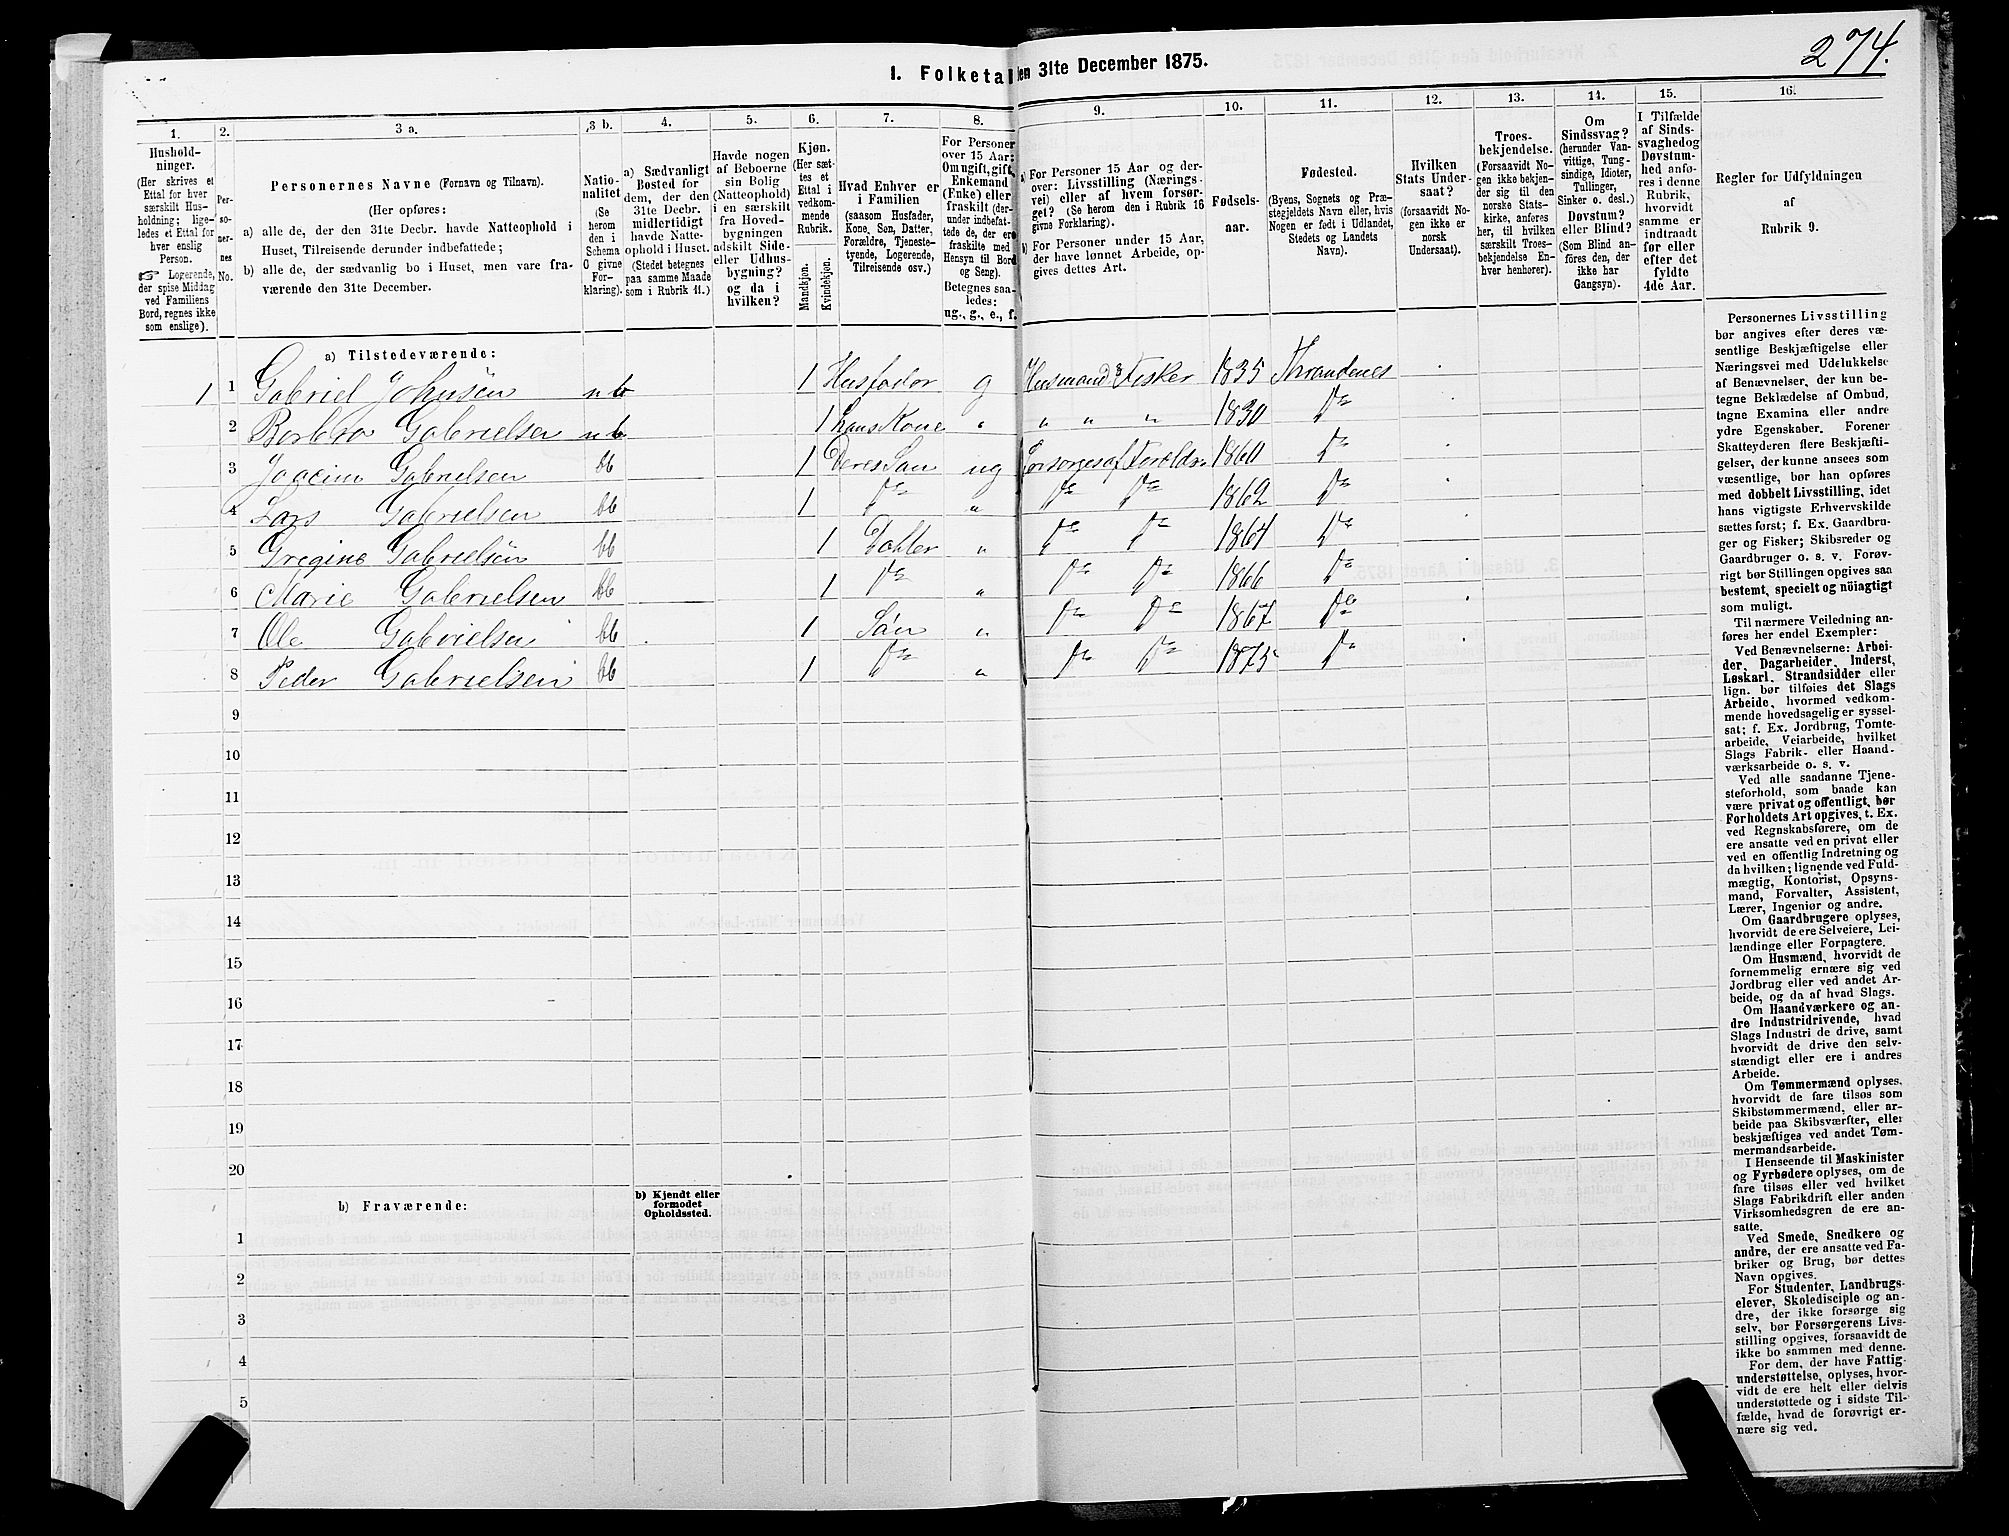 274.
1. Folketal den 31te December 1875.
1. 2. 3 a. 3 b. 4. 5. 6. 7. 8. 9. 10. 11. 12. 13. 14. 15. 16.
Hushold-
ninger.
(Her skrives et
Ettal for hver
særskilt Hus-
holdning; lige-
ledes et Ettal for
hver enslig
Person.
☞ Logerende,
der spise Middag
ved Familiens
Bord, regnes ikke
som enslige).
Per-
so-
ner-
nes
No.
Personernes Navne (Fornavn og Tilnavn).
(Her opføres:
a) alle de, der den 31te Decbr. havde Natteophold i
Huset, Tilreisende derunder indbefattede;
b) alle de, der sædvanlig bo i Huset, men vare fra-
værende den 31te December.
Natio-
nalitet
(Se
herom
den i
Schema
O givne
For-
klaring).
a) Sædvanligt
Bosted for
dem, der den
31te Decbr.
midlertidigt
havde Natte-
ophold i Huset.
(Stedet betegnes
paa samme Maade
som i Rubrik 11.)
Havde nogen
af Beboerne
sin Bolig
(Natteophold)
i en særskilt
fra Hoved-
bygningen
adskilt Side-
eller Udhus-
bygning?
og da i
hvilken?
Kjøn.
(Her sæt-
tes et
Ettal i
vedkom-
mende
Rubrik.
Mandkjøn.
Kvindekjøn.
Hvad Enhver er
i Familien
(saasom Husfader,
Kone, Søn, Datter,
Forældre, Tjeneste-
tyende, Logerende,
Tilreisende osv.)
For Personer
over 15 Aar:
Om ugift, gift,
Enkemand
(Enke) eller
fraskilt (der-
under indbefat-
tede de, der ere
fraskilte med
Hensyn til Bord
og Seng).
Betegnes saa-
ledes:
ug., g., e., f.
a) For Personer 15 Aar og der-
over: Livsstilling (Nærings-
vei) eller af hvem forsør-
get? (Se herom den i Rubrik 16
givne Forklaring).
b) For Personer under 15 Aar,
der have lønnet Arbeide, op-
gives dettes Art.
Fødsels-
aar.
Fødested.
(Byens, Sognets og Præ-
stegjeldets Navn eller, hvis
Nogen er født i Udlandet,
Stedets og Landets
Navn).
Hvilken
Stats Under-
saat?
(forsaavidt No-
gen ikke er
norsk
Undersaat).
Troes-
bekjendelse.
(Forsaavidt No-
gen ikke bekjen-
der sig til den
norske Stats-
kirke, anføres
her, til hvilken
særskilt Troes-
bekjendelse En-
hver henhører).
Om
Sindssvag?
(herunder Van-
vittige, Tung-
sindige, Idioter,
Tullinger,
Sinker o. desl.)
Døvstum?
eller Blind?
(Som Blind an-
føres den, der
ikke har
Gangsyn).
I Tilfælde
af Sinds-
svaghed og
Døvstum-
hed anfø-
res i denne
Rubrik,
hvorvidt
samme er
indtraadt
før eller
efter det
fyldte
4de Aar.
Regler for Udfyldningen
af
Rubrik 9.
a) Tilstedeværende:
1 1 Gabriel Johnsen nb 1 Husfader g Husmand & Fisker 1835 Throndenes
2 Berbro Gabrielsen nb 1 hans Kone „ „ „ „ 1830 Do
3 Joacim Gabrielsen bb 1 Deres Søn ug Forsørges af Foreldr. 1860 Do
4 Lars Gabrielsen bb 1 Do „ Do Do 1862 Do
5 Gregine Gabrielsen bb 1 Dotter „ Do Do 1864 Do
6 Marie Gabrielsen bb 1 Do „ Do Do 1866 Do
7 Ole Gabrielsen bb 1 Søn „ Do Do 1867 Do
8 Peder Gabrielsen bb 1 Do „ Do Do 1875 Do
9
10
11
12
13
14
15
16
17
18
19
20
b) Fraværende:
b) Kjendt eller
formodet
Opholdssted.
1
2
3
4
5
Personernes Livsstilling
bør angives efter deres væ-
sentlige Beskjæftigelse eller
Næringsvei med Udelukkelse
af Benævnelser, der kun be-
tegne Beklædelse af Ombud,
tagne Examina eller andre
ydre Egenskaber. Forener
Skatteyderen flere Beskjæfti-
gelser, der kunne ansees som
væsentlige, bør han opføres
med dobbelt Livsstilling, idet
hans vigtigste Erhvervskilde
sættes først; f. Ex. Gaardbru-
ger og Fisker; Skibsreder og
Gaardbruger o. s. v. Forøv-
rigt bør Stillingen opgives saa
bestemt, specielt og nöiagtigt
som muligt.
Til nærmere Veiledning an-
føres her endel Exempler:
Ved Benævnelserne: Arbei-
der, Dagarbeider, Inderst,
Løskarl, Strandsidder eller
lign. bør tilføies det Slags
Arbeide, hvormed vedkom-
mende hovedsagelig er syssel-
sat; f. Ex. Jordbrug, Tomte-
arbeide, Veiarbeide, hvilket
Slags Fabrik- eller Haand-
værksarbeide o. s. v.
Ved alle saadanne Tjene-
steforhold, som baade kan
være privat og offentligt, bør
Forholdets Art opgives, t. Ex.
ved Regnskabsførere, om de
ere ansatte ved en privat eller
ved en offentlig Indretning og
da hvilken; lignende ved Fuld-
mægtig, Kontorist, Opsyns-
mand, Forvalter, Assistent,
Lærer, Ingeniør og andre.
Om Gaardbrugere oplyses,
hvorvidt de ere Selveiere, Lei-
lændinge eller Forpagtere.
Om Husmænd, hvorvidt de
fornemmelig ernære sig ved
Jordbrug eller ved andet Ar-
beide, og da af hvad Slags.
Om Haandværkere og an-
dre Industridrivende, hvad
Slags Industri de drive, samt
hvorvidt de drive den selv-
stændigt eller ere i andres
Arbeide.
Om Tømmermænd oplyses,
hvorvidt de fare tilsøs som
Skibstømmermænd, eller ar-
beide paa Skibsværfter, eller
beskjæftiges ved andet Tøm-
mermandsarbeide.
I Henseende til Maskinister
og Fyrbødere oplyses, om de
fare tilsøs eller ved hvilket
Slags Fabrikdrift eller anden
Virksomhedsgren de ere an-
satte.
Ved Smede, Snedkere og
andre, der ere ansatte ved Fa-
briker og Brug, bør dettes
Navn opgives.
For Studenter, Landbrugs-
elever, Skoledisciple og an-
dre, der ikke forsørge sig
selv, bør Forsørgerens Livs-
stilling opgives, forsaavidt de
ikke bo sammen med denne.
For dem, der have Fattig-
understøttelse, oplyses, hvor-
vidt de ere helt eller delvis
understøttede og i sidste Til-
fælde, hvad de forøvrigt er-
nære sig ved.